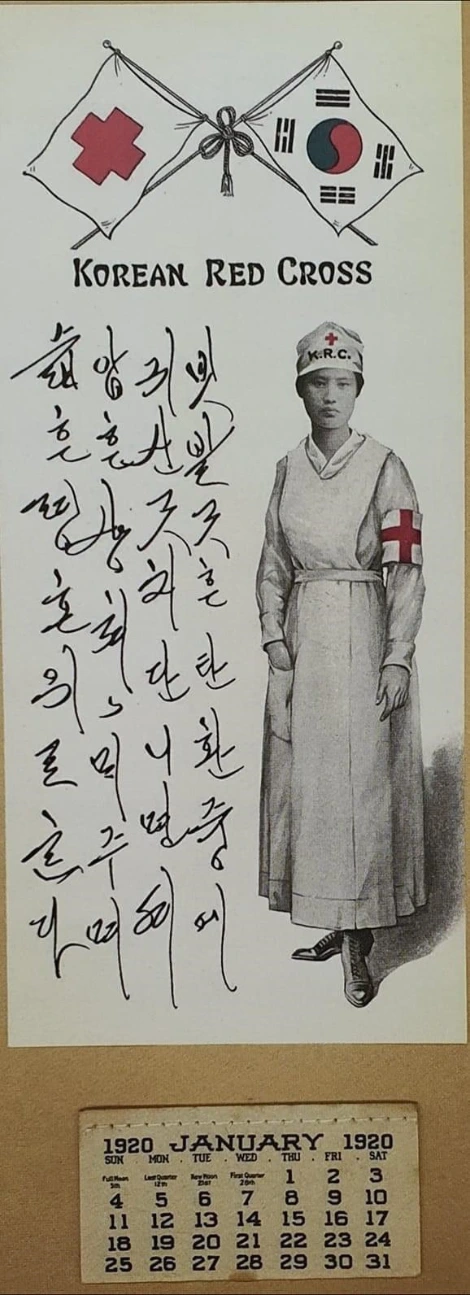 KOREAN RED CROSS
빗발굿흔탄환중에
귀신굿치단니면셔
압흔상쳐미주며
슯흔령혼위로한다
K.R.C.
1920 JANUARY 1920
SUN . MON . TUE . WED . THU . FRI . SAT
Full Moon 5th Last Quarter 12th New Moon 21st First Quarter 28th 1 2 3
4 5 6 7 8 9 10
11 12 13 14 15 16 17
18 19 20 21 22 23 24
25 26 27 28 29 30 31